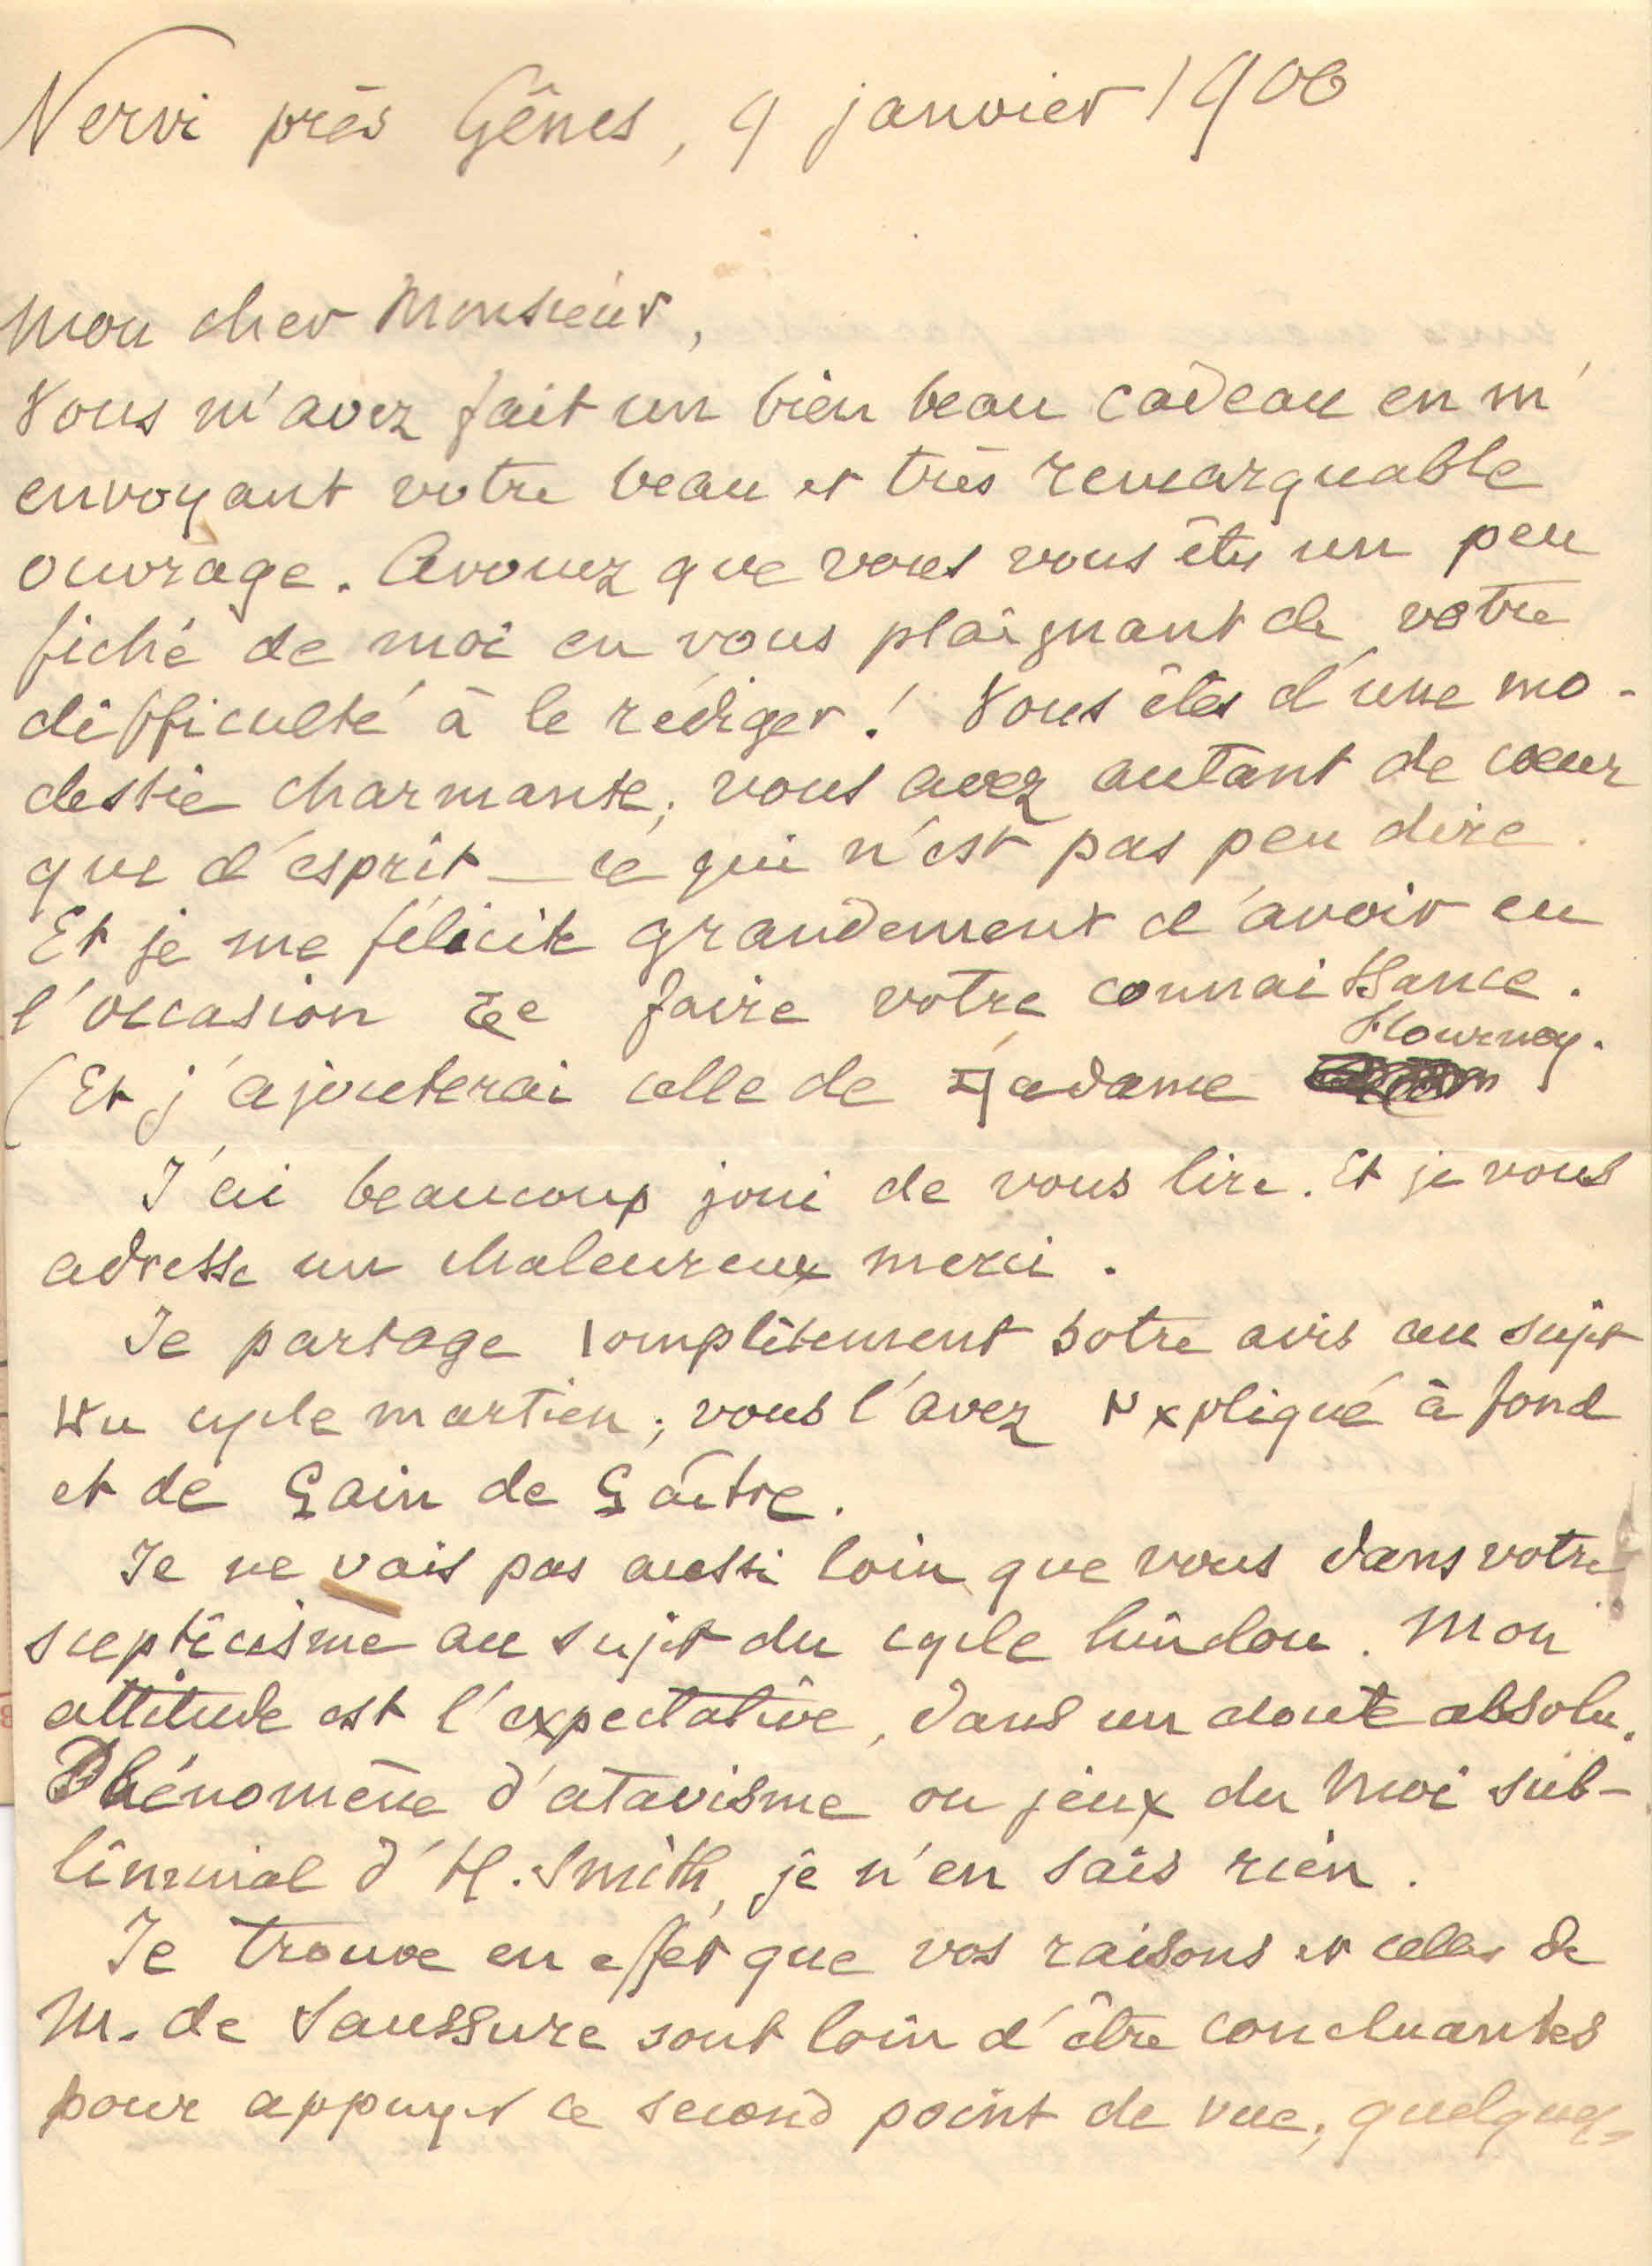 Nervi près Gênes, 9 janvier 1900
Mon cher Monsieur,
Vous m'avez fait un bien beau cadeau en m'
envoyant votre beau et très remarquable
ouvrage. Avouez que vous vous êtes un peu
fiché de moi en vous plaignant de votre
difficulté à le rédiger! Vous êtes d'une mo-
destie charmante; vous avez autant de cœur
que d'esprit — ce qui n'est pas peu dire.
Et je me félicite grandement d'avoir eu
l'occasion de faire votre connaissance.
(Et j'ajouterai celle de Madame Flournoy.
J'ai beaucoup joui de vous lire. Et je vous
adresse un chaleureux merci.
Je partage complètement votre avis au sujet
du cycle martien; vous l'avez expliqué à fond
et de main de maître.
Je ne vais pas aussi loin que vous dans votre
scepticisme au sujet du cycle hindou. Mon
attitude est l'expectative, dans un doute absolu.
Phénomène d'atavisme ou jeux du Moi sub-
liminal d'H. Smith, je n'en sais rien.
Je trouve en effet que vos raisons et celles de
M. de Saussure sont loin d'être concluantes
pour appuyer ce second point de vue; quelques-